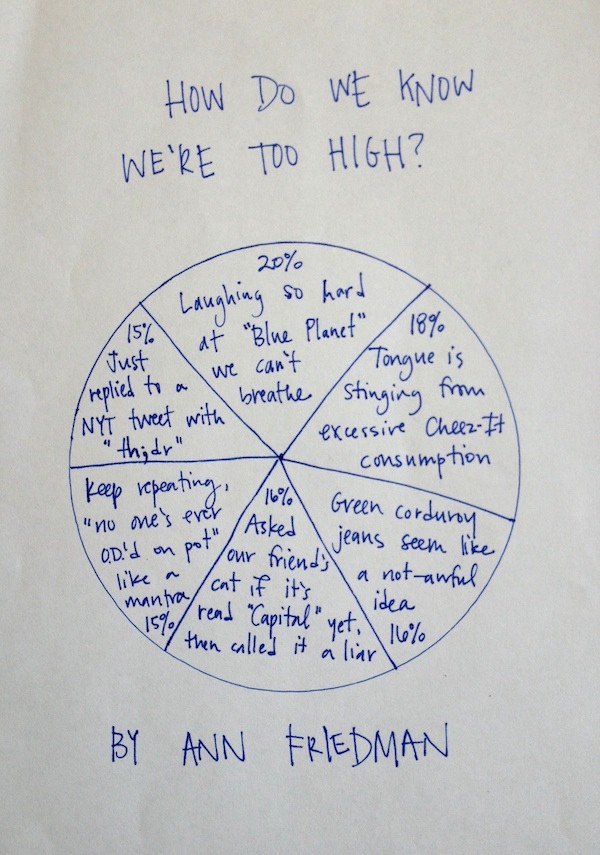 HOW DO WE KNOW
WE'RE TOO HIGH?
20%
Laughing so hard
at "Blue Planet"
we can't
breathe
18%
Tongue is
stinging from
excessive Cheez-It
consumption
Green corduroy
jeans seem like
a not-awful
idea
16%
16%
Asked
our friend's
cat if it's
read "Capital" yet,
then called it a liar
Keep repeating,
"no one's ever
O.D.'d on pot"
like a
mantra
15%
15%
Just
replied to a
NYT tweet with
"th;dr"
BY ANN FRIEDMAN